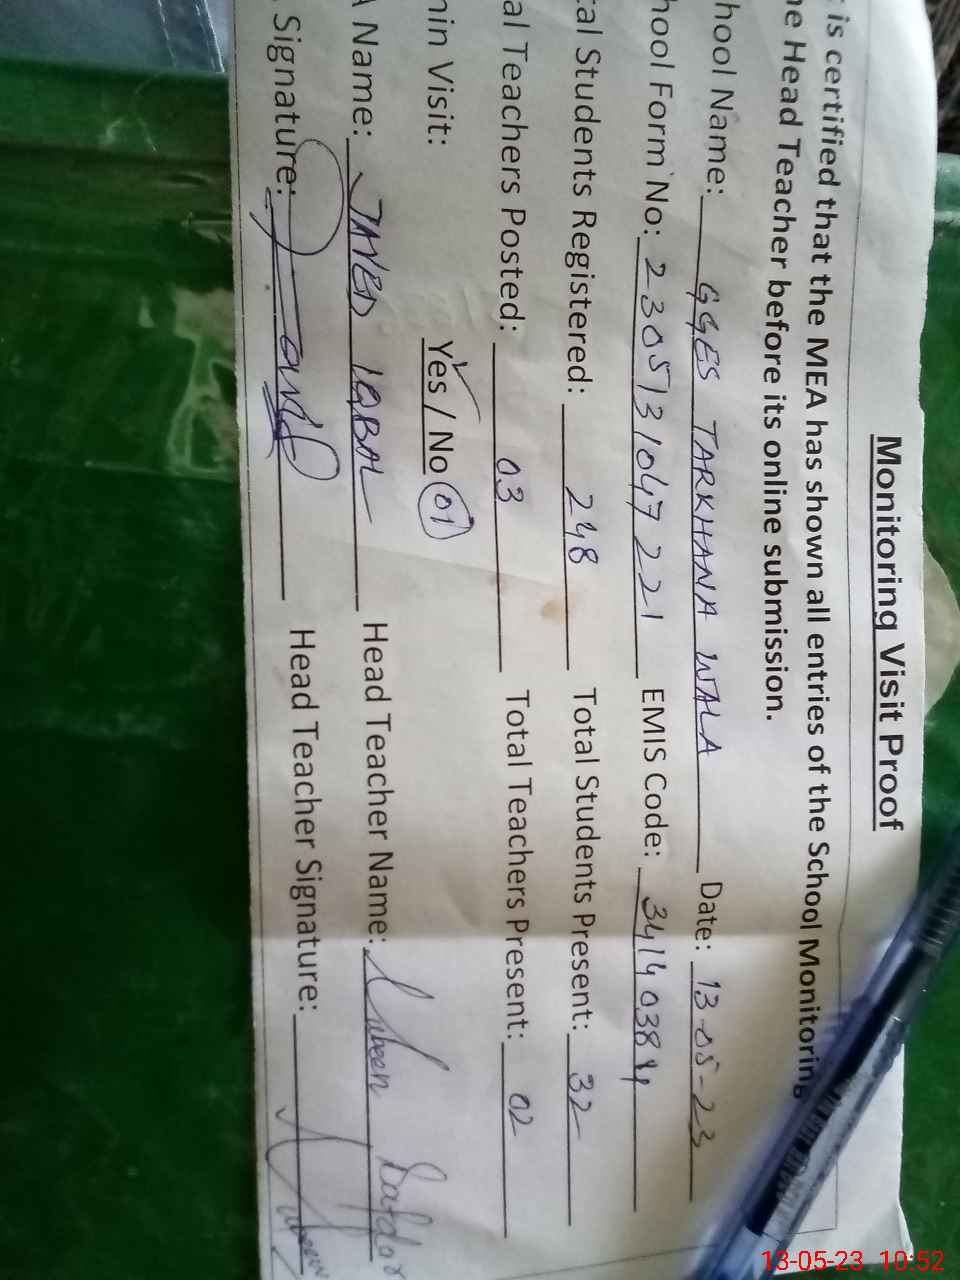 Monitoring Visit Proof
is certified that the MEA has shown all entries of the School Monitoring
he Head Teacher before its online submission.
hool Name: GGES TARKHANA WALA Date: 13-05-23
hool Form No: 2305131047221 EMIS Code: 34140384
tal Students Registered: 248 Total Students Present: 32
al Teachers Posted: 03 Total Teachers Present: 02
min Visit: Yes / No 01
A Name: JAVED IQBAL Head Teacher Name: Safdar
Signature: Head Teacher Signature:
13-05-23 10:52